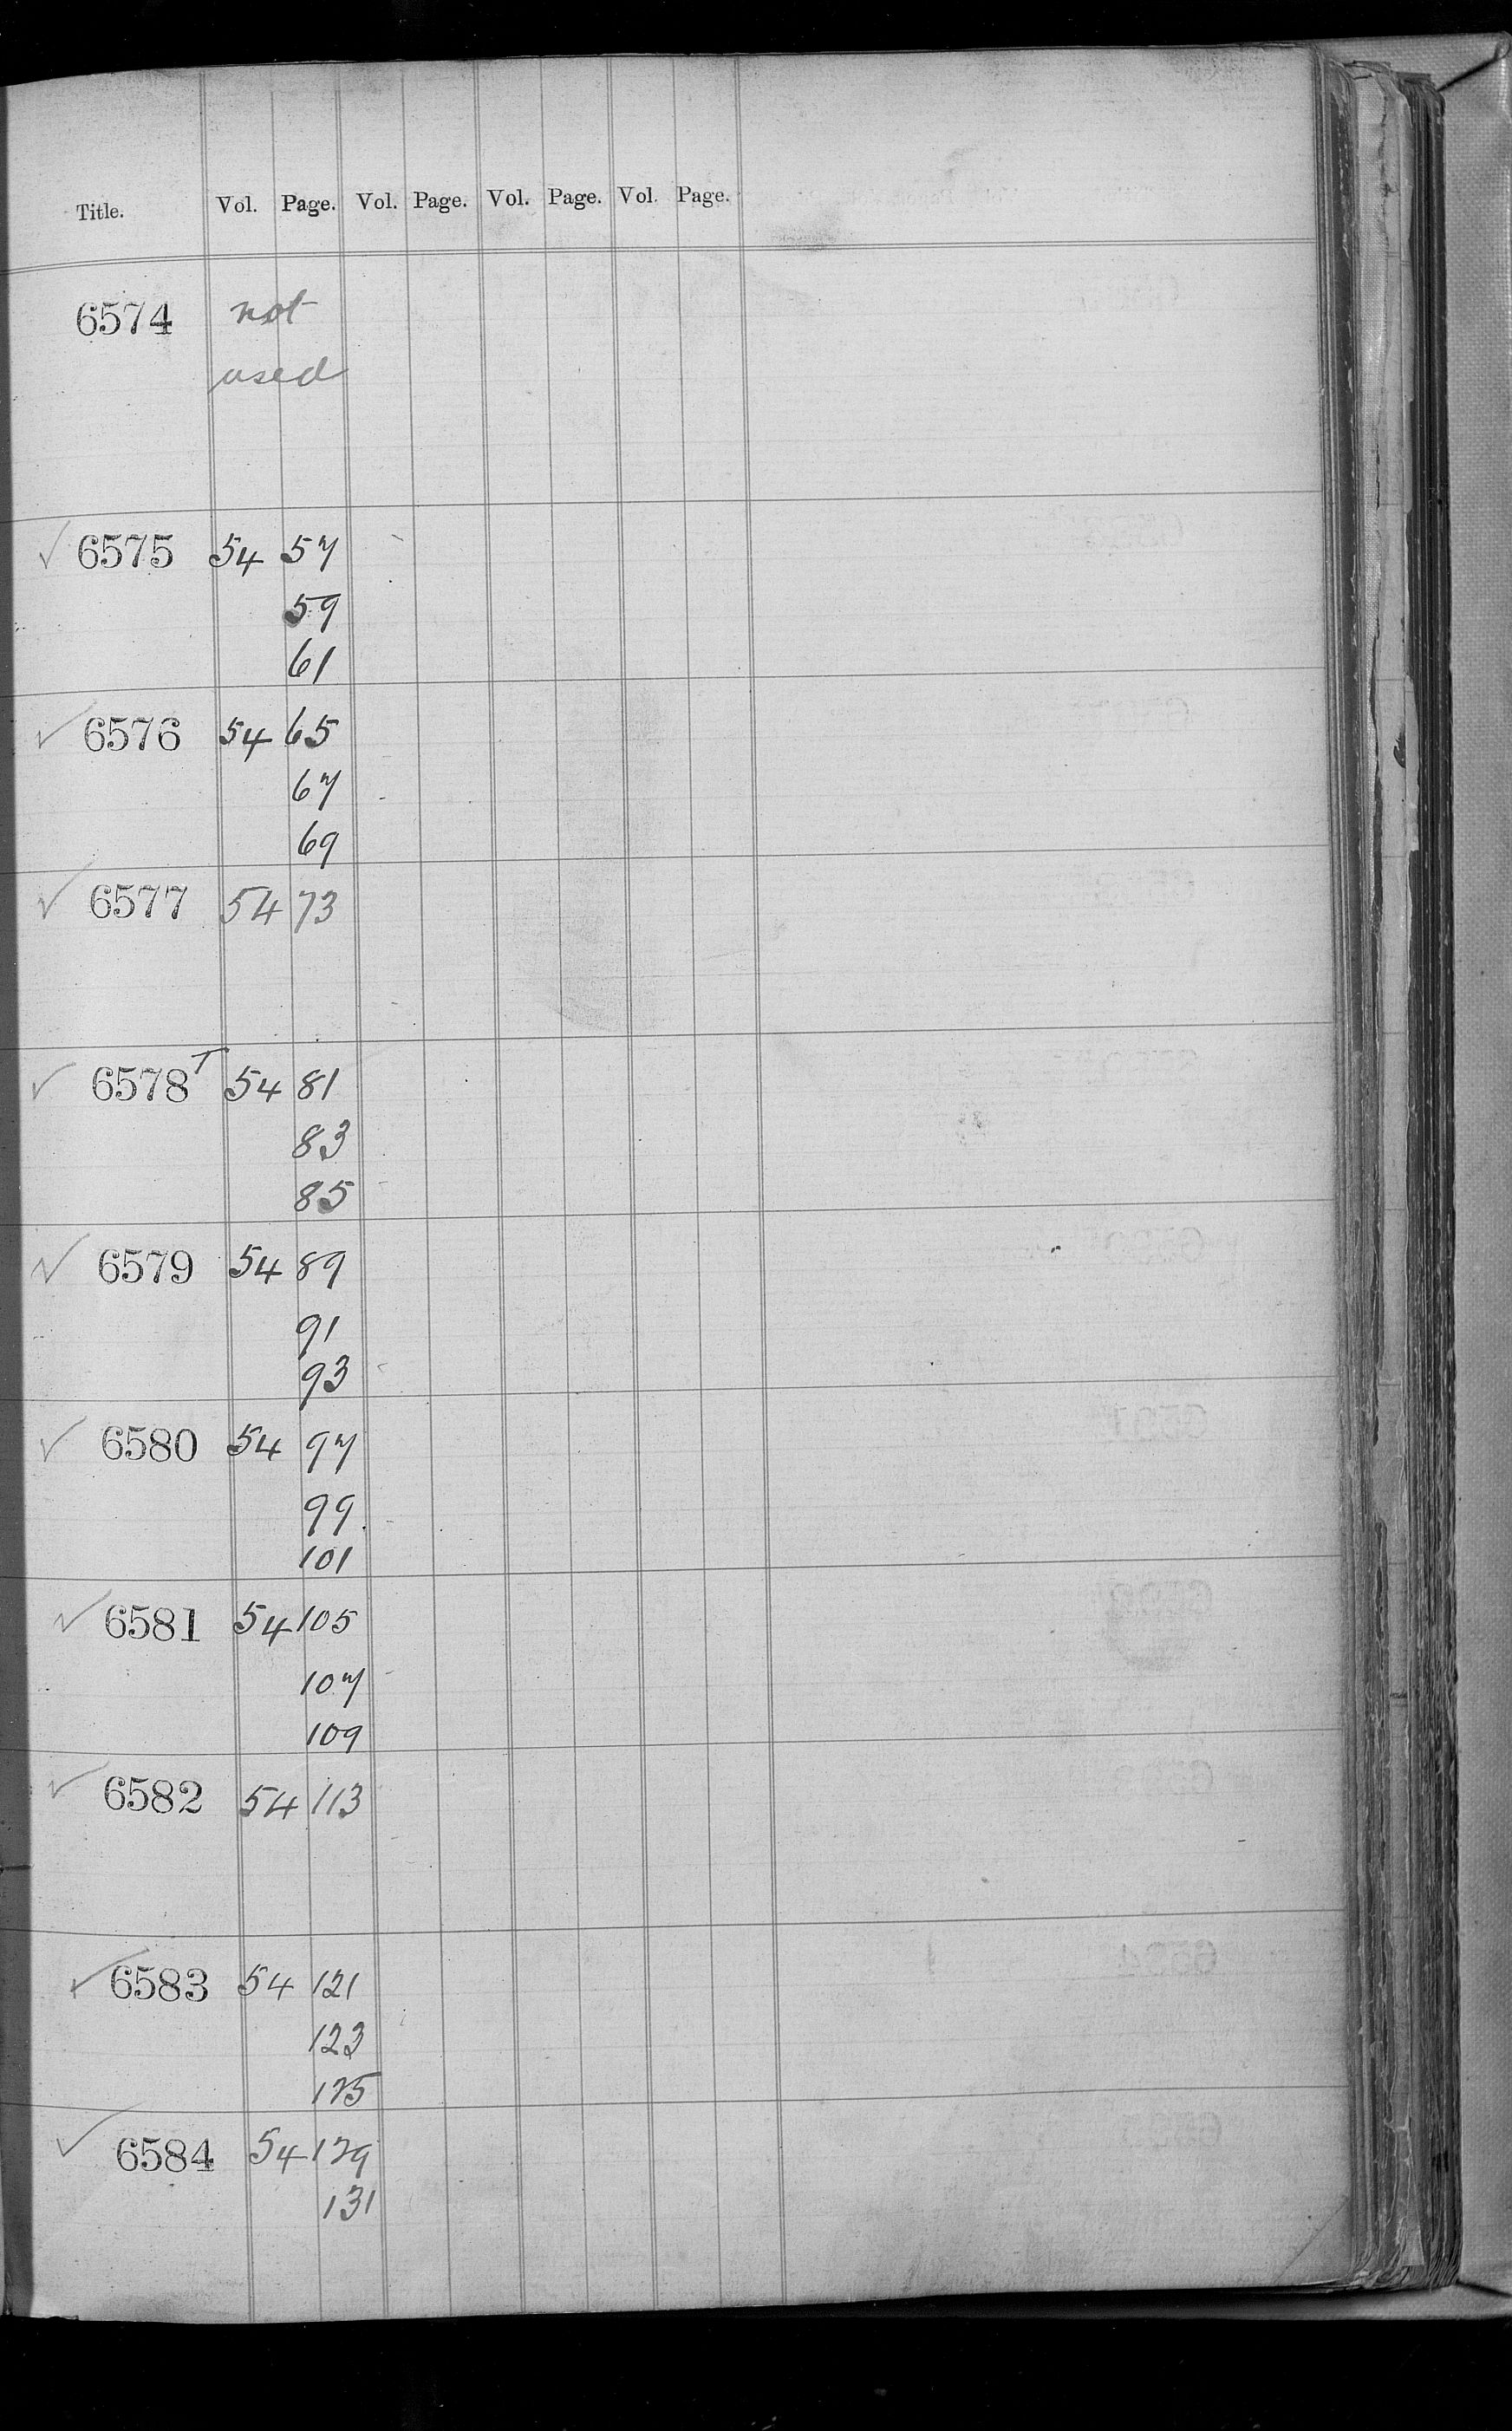 Title. Vol. Page. Vol. Page. Vol. Page. Vol. Page.
6574 not
used
✓ 6575 54 57
59
61
✓ 6576 54 65
67
69
✓ 6577 54 73
✓ 6578 T 54 81
83
85
✓ 6579 54 89
91
93
✓ 6580 54 97
99
101
✓ 6581 54 105
107
109
✓ 6582 54 113
✓ 6583 54 121
123
125
✓ 6584 54 129
131